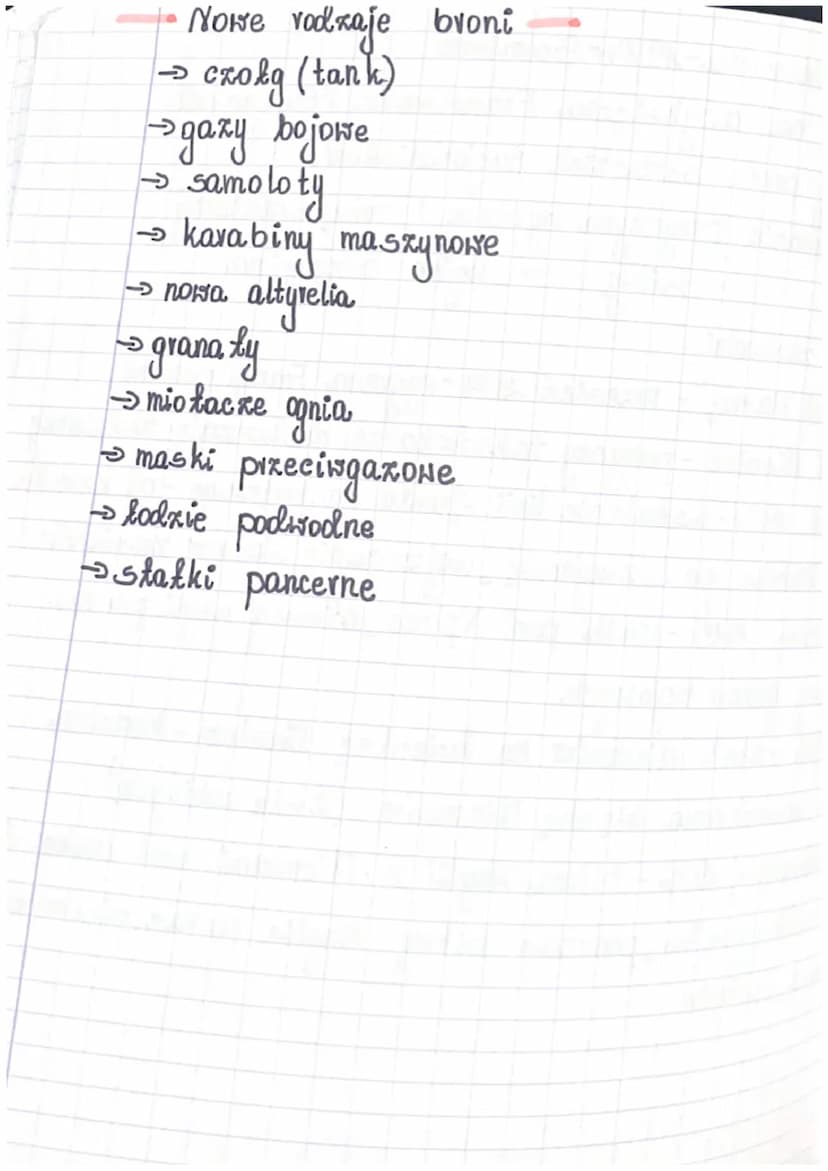 Nowe rodzaje broni
→ czołg (tank)
→ gazy bojowe
→ samoloty
→ karabiny maszynowe
→ nowa altyrelia
→ granaty
→ miotacze ognia
→ maski przeciwgazowe
→ łodzie podwodne
→ statki pancerne